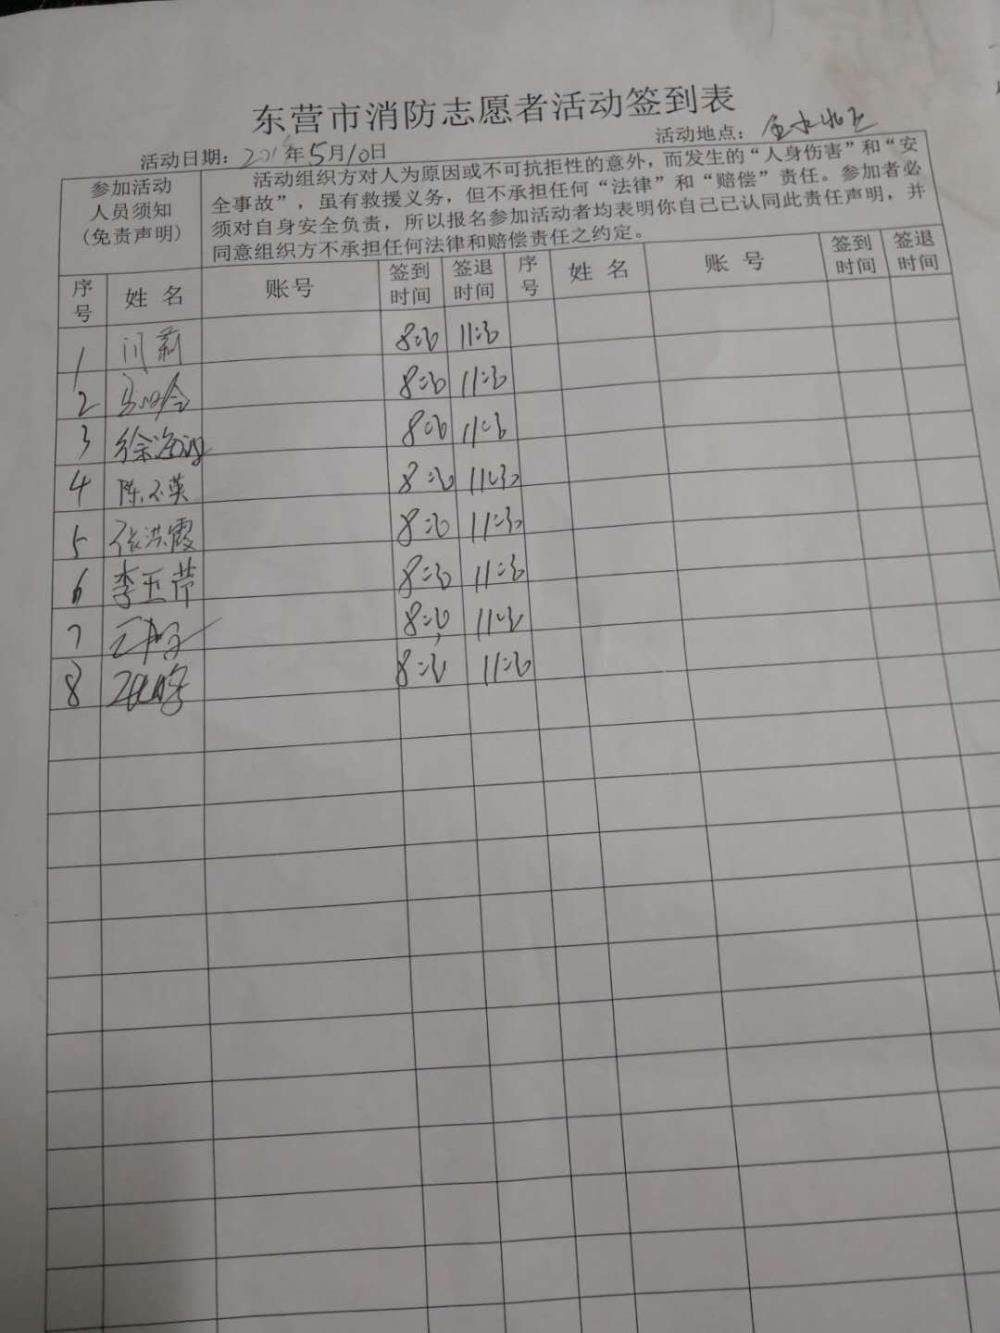 东营市消防志愿者活动签到表
活动日期：2018年5月10日 活动地点：
参加活动
人员须知
(免责声明)
活动组织方对人为原因或不可抗拒性的意外，而发生的“人身伤害”和“安
全事故”，虽有救援义务，但不承担任何“法律”和“赔偿”责任。参加者必
须对自身安全负责，所以报名参加活动者均表明你自己已认同此责任声明，并
同意组织方不承担任何法律和赔偿责任之约定。
序号 姓名 账号 签到时间 签退时间 序号 姓名 账号 签到时间 签退时间
1 闫莉 8:30 11:30
2 8:30 11:30
3 徐海 8:30 11:30
4 陈玉英 8:30 11:30
5 张洪霞 8:30 11:30
6 李玉芹 8:30 11:30
7 8:30 11:30
8 8:30 11:30